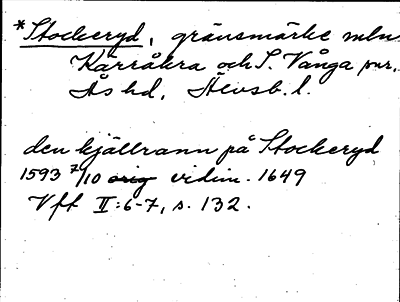 *Stockeryd, gränsmärke mln
Kärråkra och S. Vånga snr,
Ås hd, Älvsb. l.
den kjällrann på Stockeryd
1593 7/10 orig vidim. 1649
Vff II:6-7, s. 132.